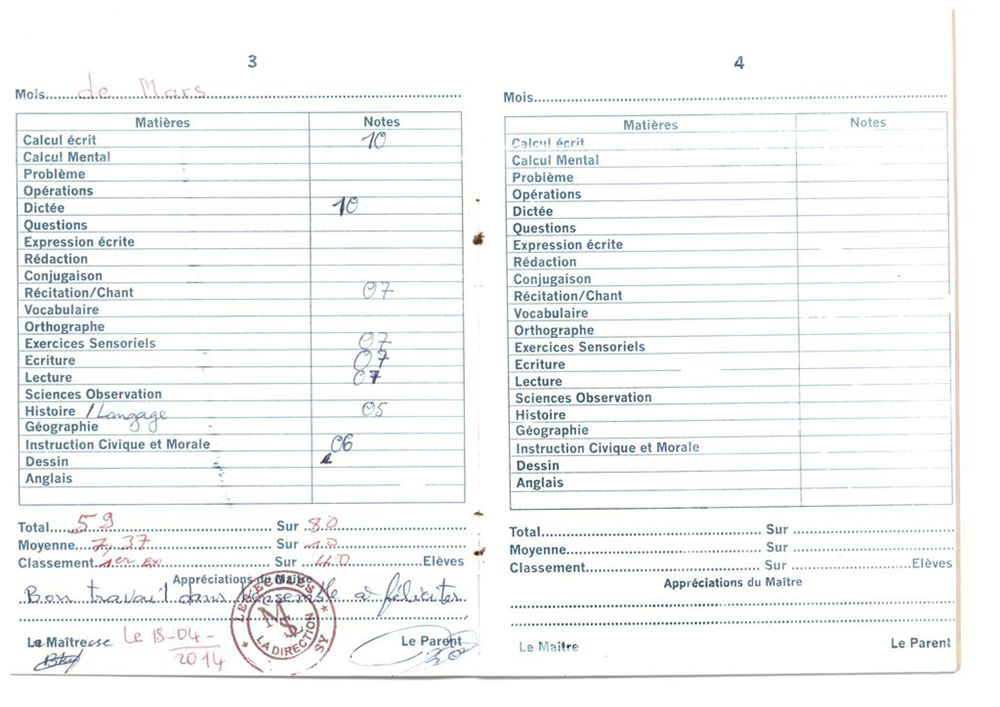 3
Mois de Mars
Matières Notes
Calcul écrit 10
Calcul Mental
Problème
Opérations
Dictée 10
Questions
Expression écrite
Rédaction
Conjugaison
Récitation/Chant 07
Vocabulaire
Orthographe
Exercices Sensoriels 07
Ecriture 07
Lecture 07
Sciences Observation
Histoire / Langage 05
Géographie
Instruction Civique et Morale 06
Dessin
Anglais
Total 59 Sur 80
Moyenne 7,37 Sur 10
Classement 1er ex Sur 40 Elèves
Appréciations du Maître
Bon travail dans l'ensemble à féliciter
Le Maîtresse Le 18-04-2014 Le Parent
LA DIRECTION
4
Mois
Matières Notes
Calcul écrit
Calcul Mental
Problème
Opérations
Dictée
Questions
Expression écrite
Rédaction
Conjugaison
Récitation/Chant
Vocabulaire
Orthographe
Exercices Sensoriels
Ecriture
Lecture
Sciences Observation
Histoire
Géographie
Instruction Civique et Morale
Dessin
Anglais
Total Sur
Moyenne Sur
Classement Sur Elèves
Appréciations du Maître
Le Maître Le Parent